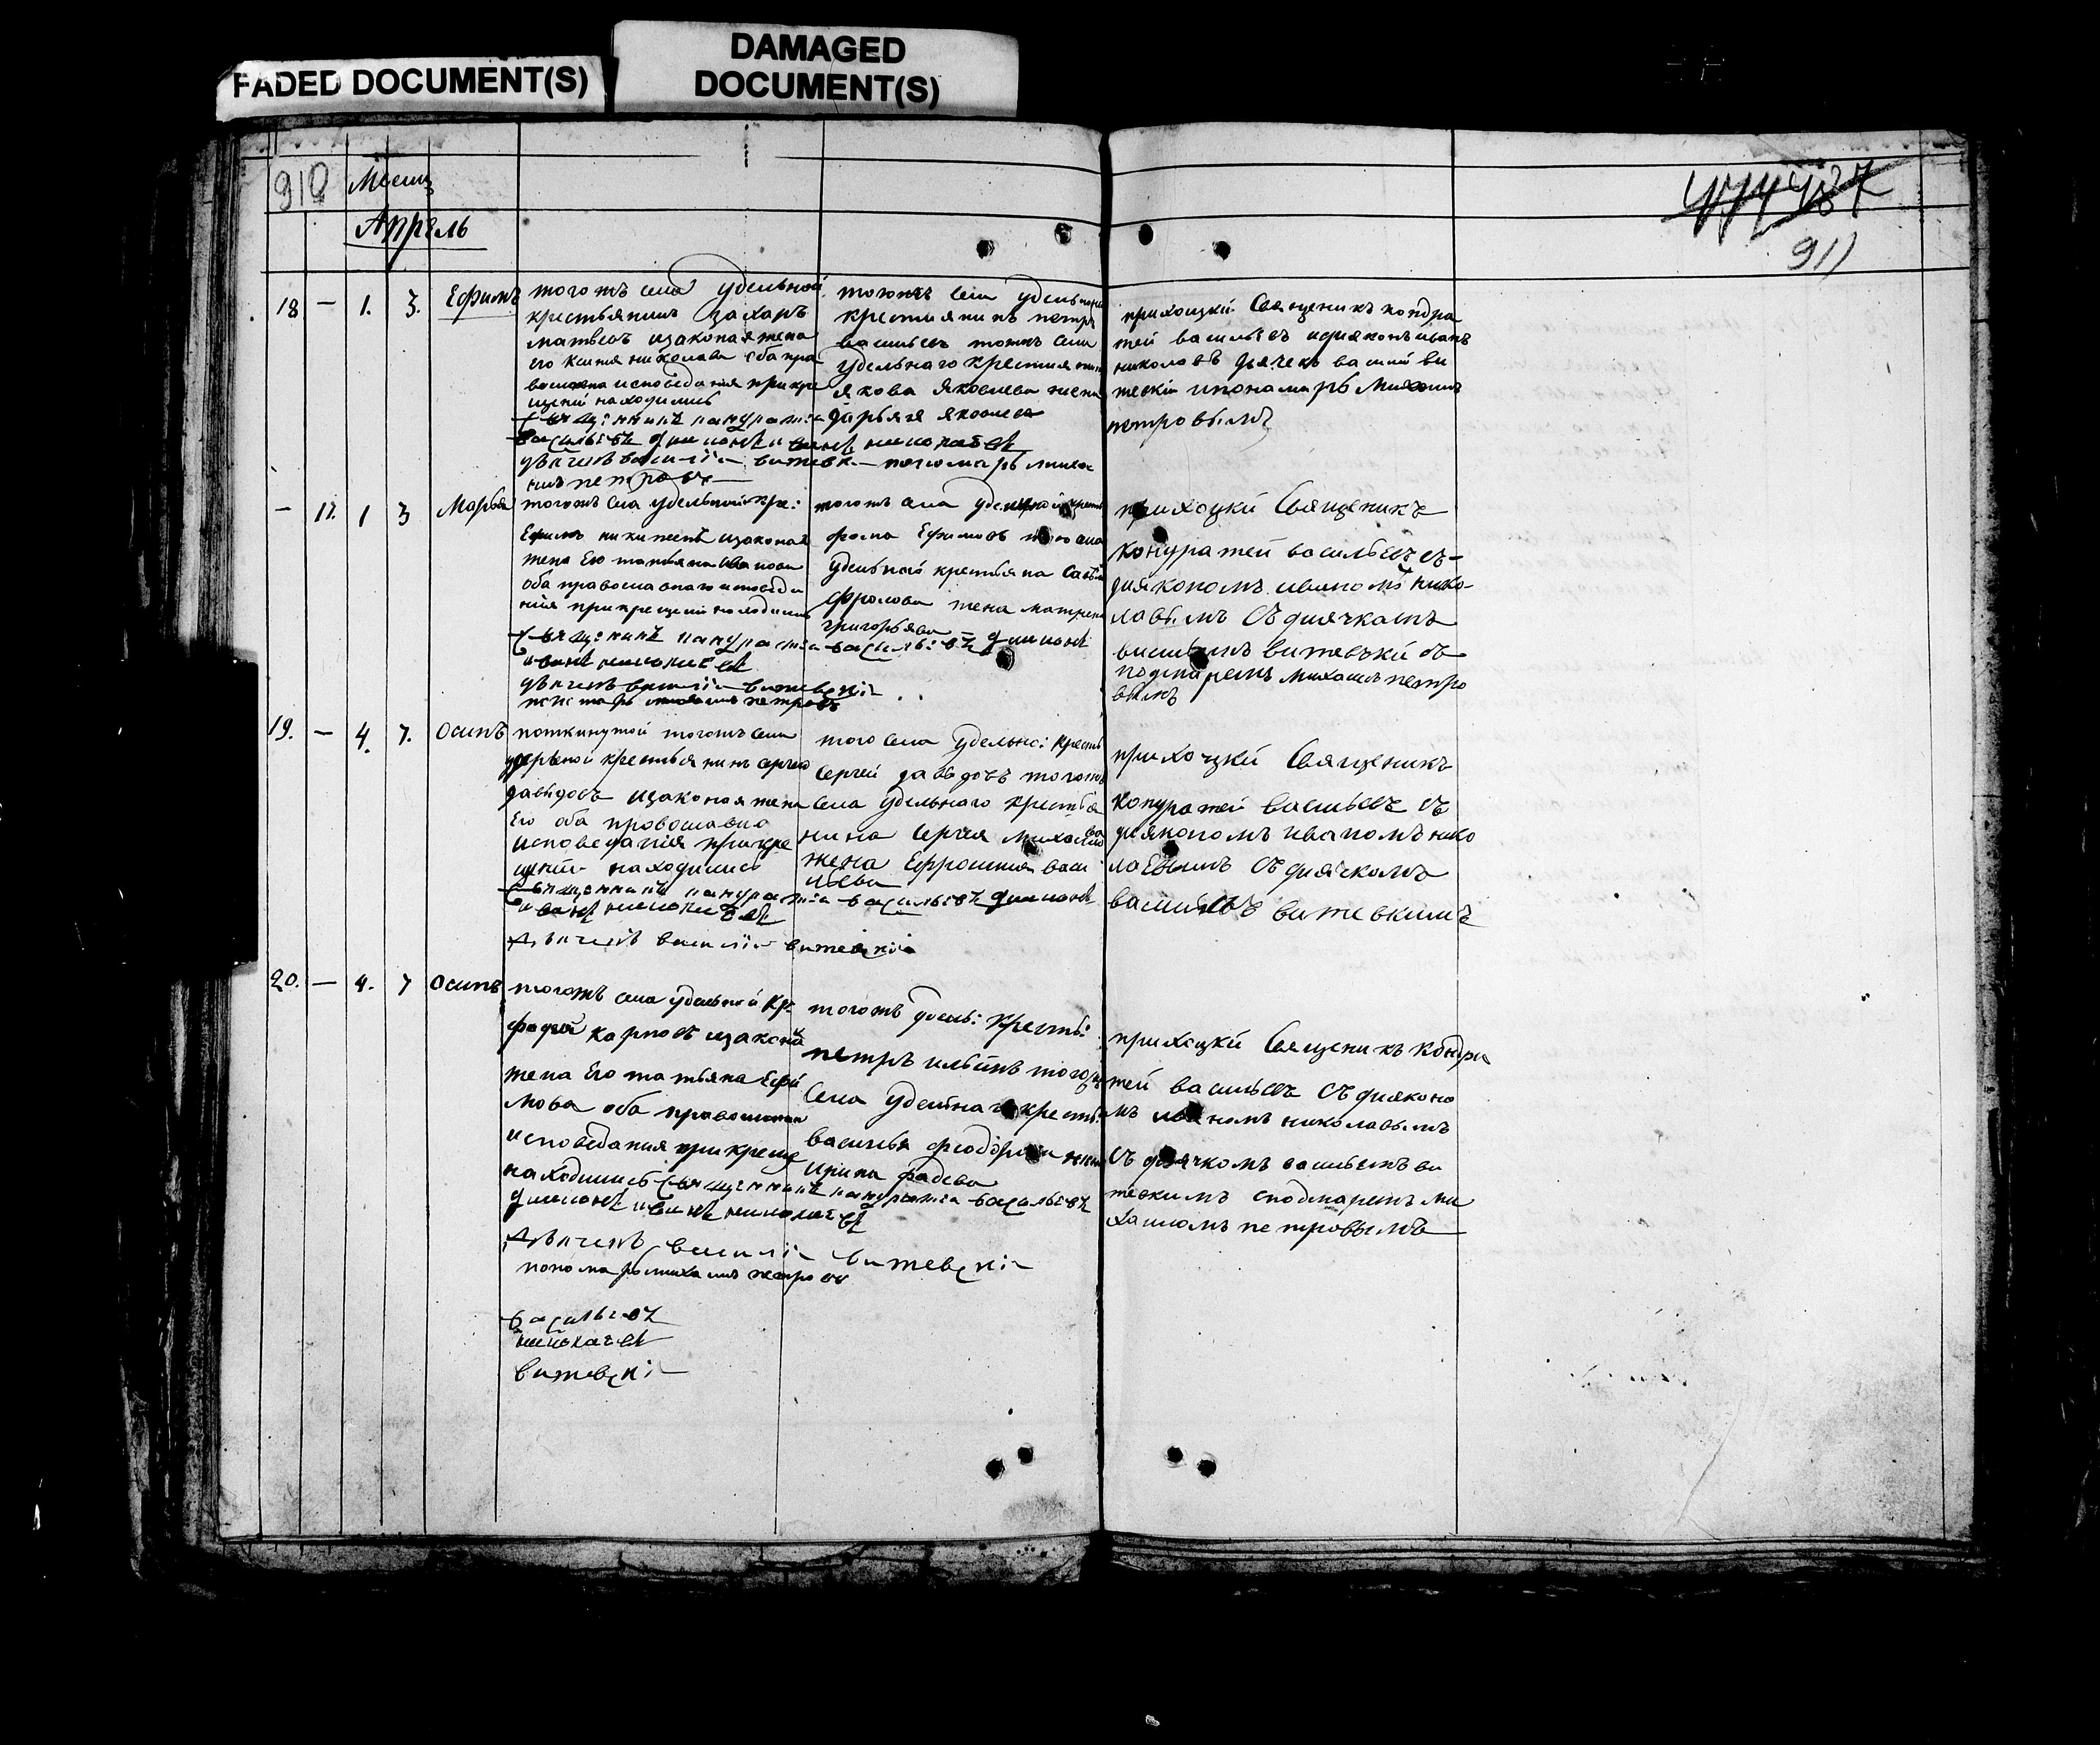 FADED DOCUMENT(S)
DAMAGED
DOCUMENT(S)
910
Месяц
Апрель
911
18 — 1. 3. Ефимъ
тогожъ села удельной
крестьянинъ Захаръ
матвеевъ изаконая жена
его ксения николаева оба пра
исповедания прикре
щении находились
Священникъ кандратiи
васильевъ дииконъ иванъ николаевъ
дьячекъ василiи витевскiи пономарь михаи
илъ петровъ
тогожъ села удельной
крестиянинъ петръ
васильевъ тожъ села
удельнаго крестиянина
якова яковлева жена
дарья яковлева
приходцкй Священикъ кондра
тей васильевъ идияконъ иванъ
николаевъ дьячекъ василй ви
тевскй ипонамарь Михаилъ
петровымъ
— 17. 1 3 Марья
тогожъ села удельной кре:
Ефимъ никитевъ изаконая
жена Его татьяна Иванова
оба православнаго исповеда
ния прикрещени находились
Священникъ кандратiи васильевъ дииконъ
иванъ николаевъ
дьячекъ василiи витевскiи
пономарь михаилъ петровъ
тогожъ села удельной
фома Ефимовъ того села
удельной крестьяна
фролова жена матрена
григорьява
приходцкй Священикъ
кондратей васильевъ съ
диякономъ иваномъ нико-
лавымъ съ диячкамъ
васильемъ витевскй съ
подмаремъ михаилъ петро
вымъ
19. — 4. 7. Осипъ
поткинутой тогожъ села
крестьянинъ сергей
давыдовъ изаконоя жена
Его оба провославно
исповеданiя прикре
щенiи находились
Священникъ кандратiи васильевъ дииконъ
иванъ николаевъ
дьячекъ василiи витевскiи
того села удельно: крестья
Сергей давыдовъ тогожъ
села удельнаго крестья
нина Сергея михаила
жена Ефросиния васи
льева
приходцкй Священикъ
кондратей васильевъ съ
диякономъ иваномъ нико
лаевымъ съ диячкомъ
васильевъ витевкимъ
20. — 4. 7 Осипъ
тогожъ села удельной кр:
фадей карповъ изаконая
жена Его татьяна Ефи
мова оба православнаи
исповедания прикреще
находились Священникъ кандратiи васильевъ
дииконъ иванъ николаевъ
дьячекъ василiи витевскiи
пономарь михаилъ петровъ
тогожъ удель: крестья:
петръ ильинъ тогожъ
села удельнаго крестья:
василья феодорова жена
Ирина фадева
приходцкй Священикъ кондра
тей васильевъ съ дияконо
мъ иваномъ николавымъ
съ диячкомъ васильемъ ви
тевкимъ сподмаремъ ми
хаиломъ петровымъ
васильевъ
николаевъ
витевскiи